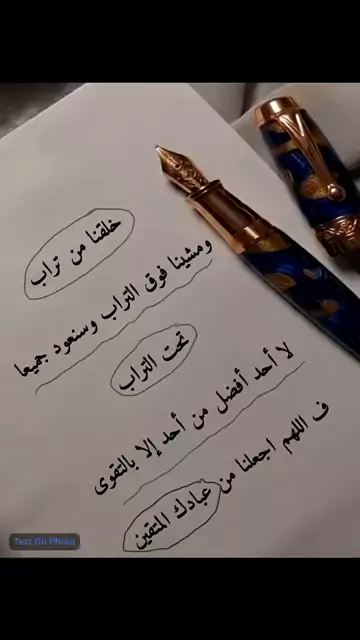 خلقنا من تراب
ومشينا فوق التراب وسنعود جميعا
تحت التراب
لا أحد أفضل من أحد إلا بالتقوى
ف اللهم اجعلنا من عبادك المتقين
Text On Photo